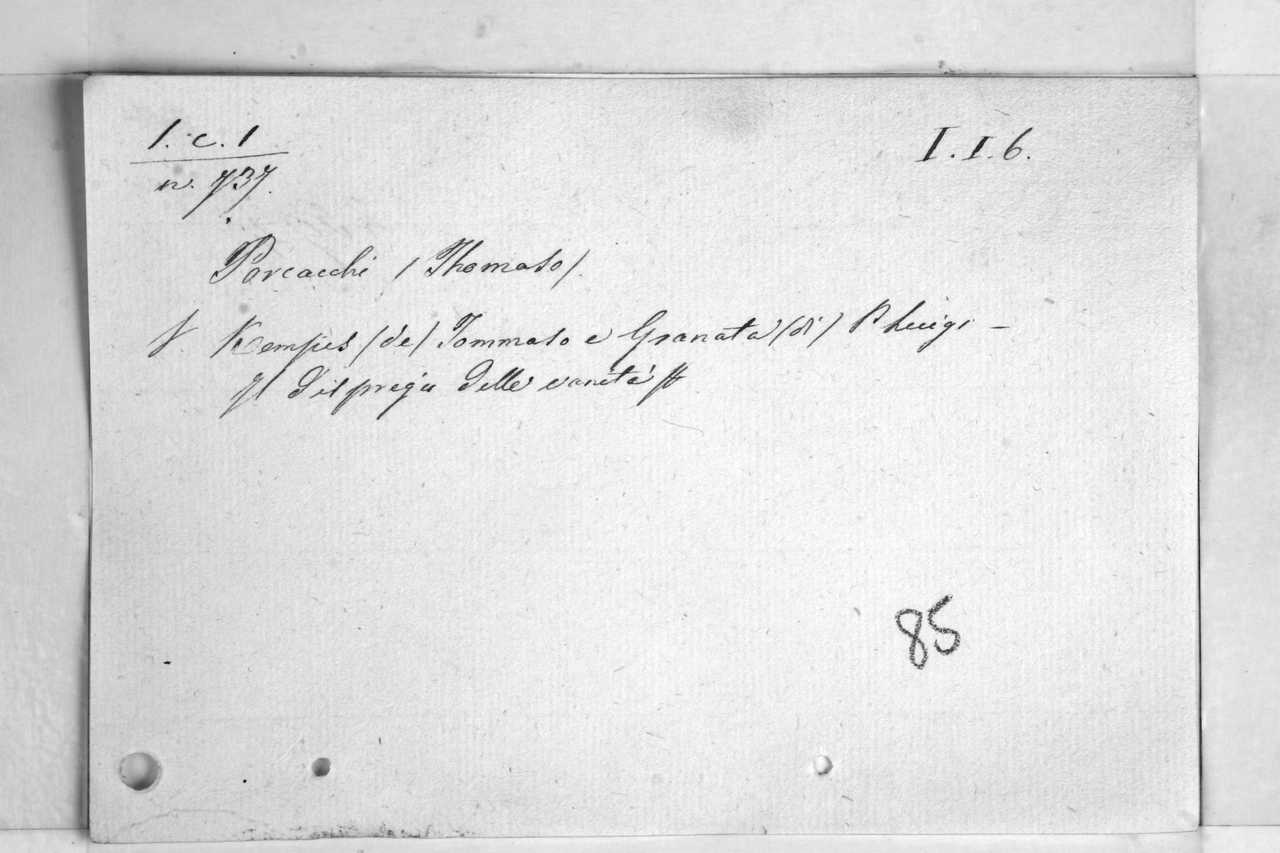 1. c. 1
I. I. 6.
n. 737.
Porcacchi /Thomaso/.
V. Kempis /de/ Tommaso e Granata /di/ P. Luigi –
Il dispregio delle vanità #
85